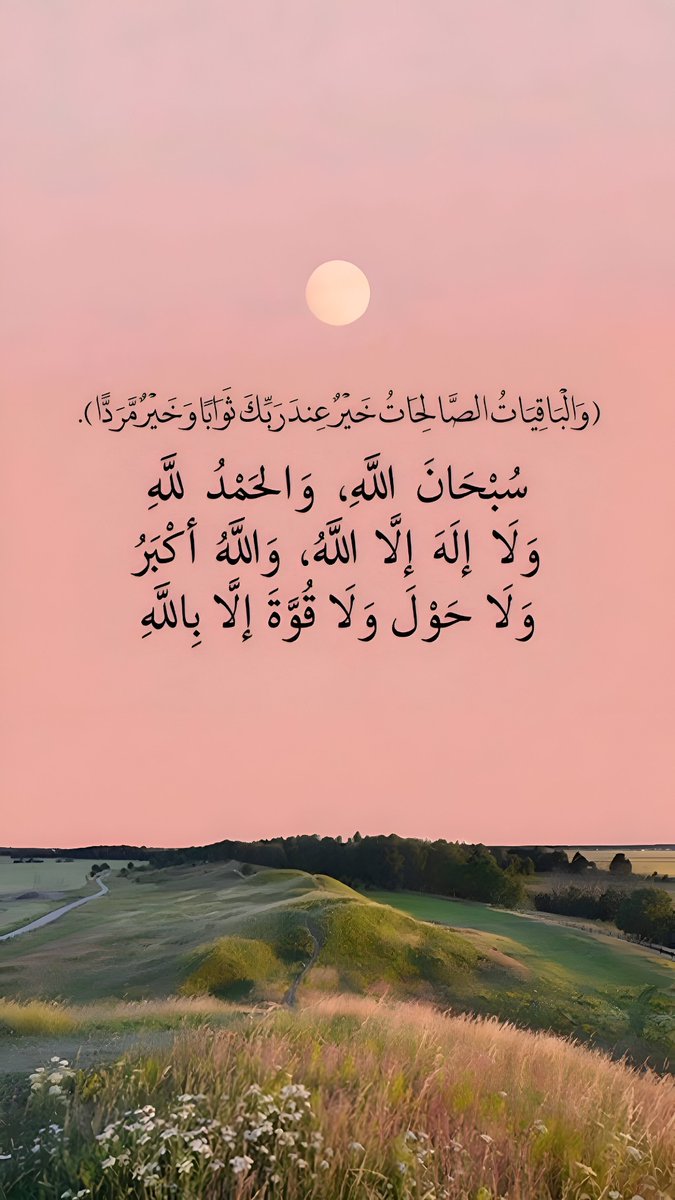 (وَالْبَاقِيَاتُ الصَّالِحَاتُ خَيْرٌ عِندَ رَبِّكَ ثَوَابًا وَخَيْرٌ مَّرَدًّا).
سُبْحَانَ اللَّهِ، وَالحَمْدُ للَّهِ
وَلَا إِلَهَ إِلَّا اللَّهُ، وَاللَّهُ أكْبَرُ
وَلَا حَوْلَ وَلَا قُوَّةَ إِلَّا بِاللَّهِ